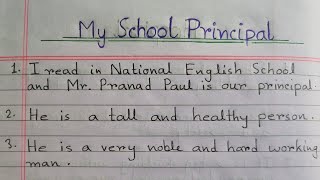 My School Principal
1. I read in National English School
and Mr. Pranad Paul is our principal.
2. He is a tall and healthy person.
3. He is a very noble and hard working
man.